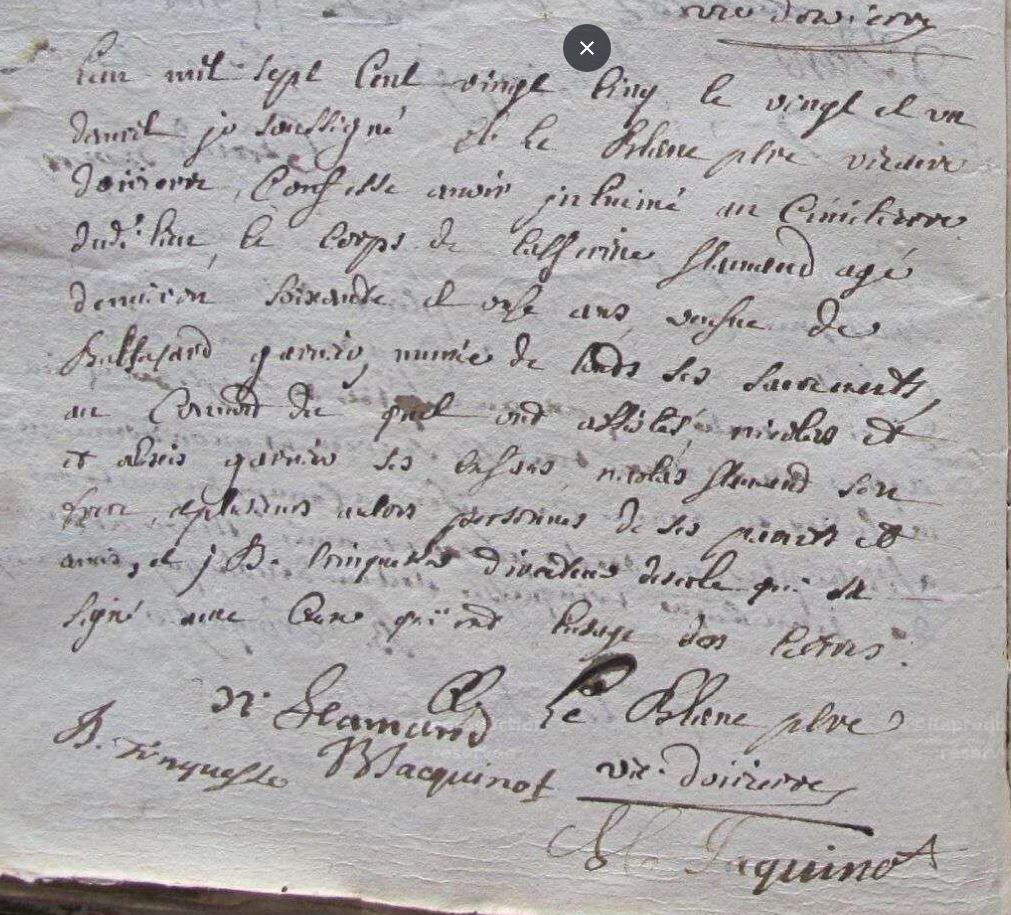 vic d'oirieres
Lan mil sept Cent vingt Cinq le vingt et un
davril je soussigné Le Blanc pbre vicaire
Confesse avoir inhumé au Cimitiere
dud. lieu, le Corps de Catherine flamand agé
denviron soixante et onse ans, veufue de
Balthasard garnier, munie de touts ses sacrements,
au Convoid du quel ont assistés, nicolas et
et alexis garnier ses enfans, nicolas flamand son
frere, et plusieurs autres personnes de ses parents et
amis, et j B. directeur descole qui se
signé avec Ceux qui ont lusage des lettres.
N. Flamand Le Blanc pbre
B. Jacquinot vic.
Jaquinot